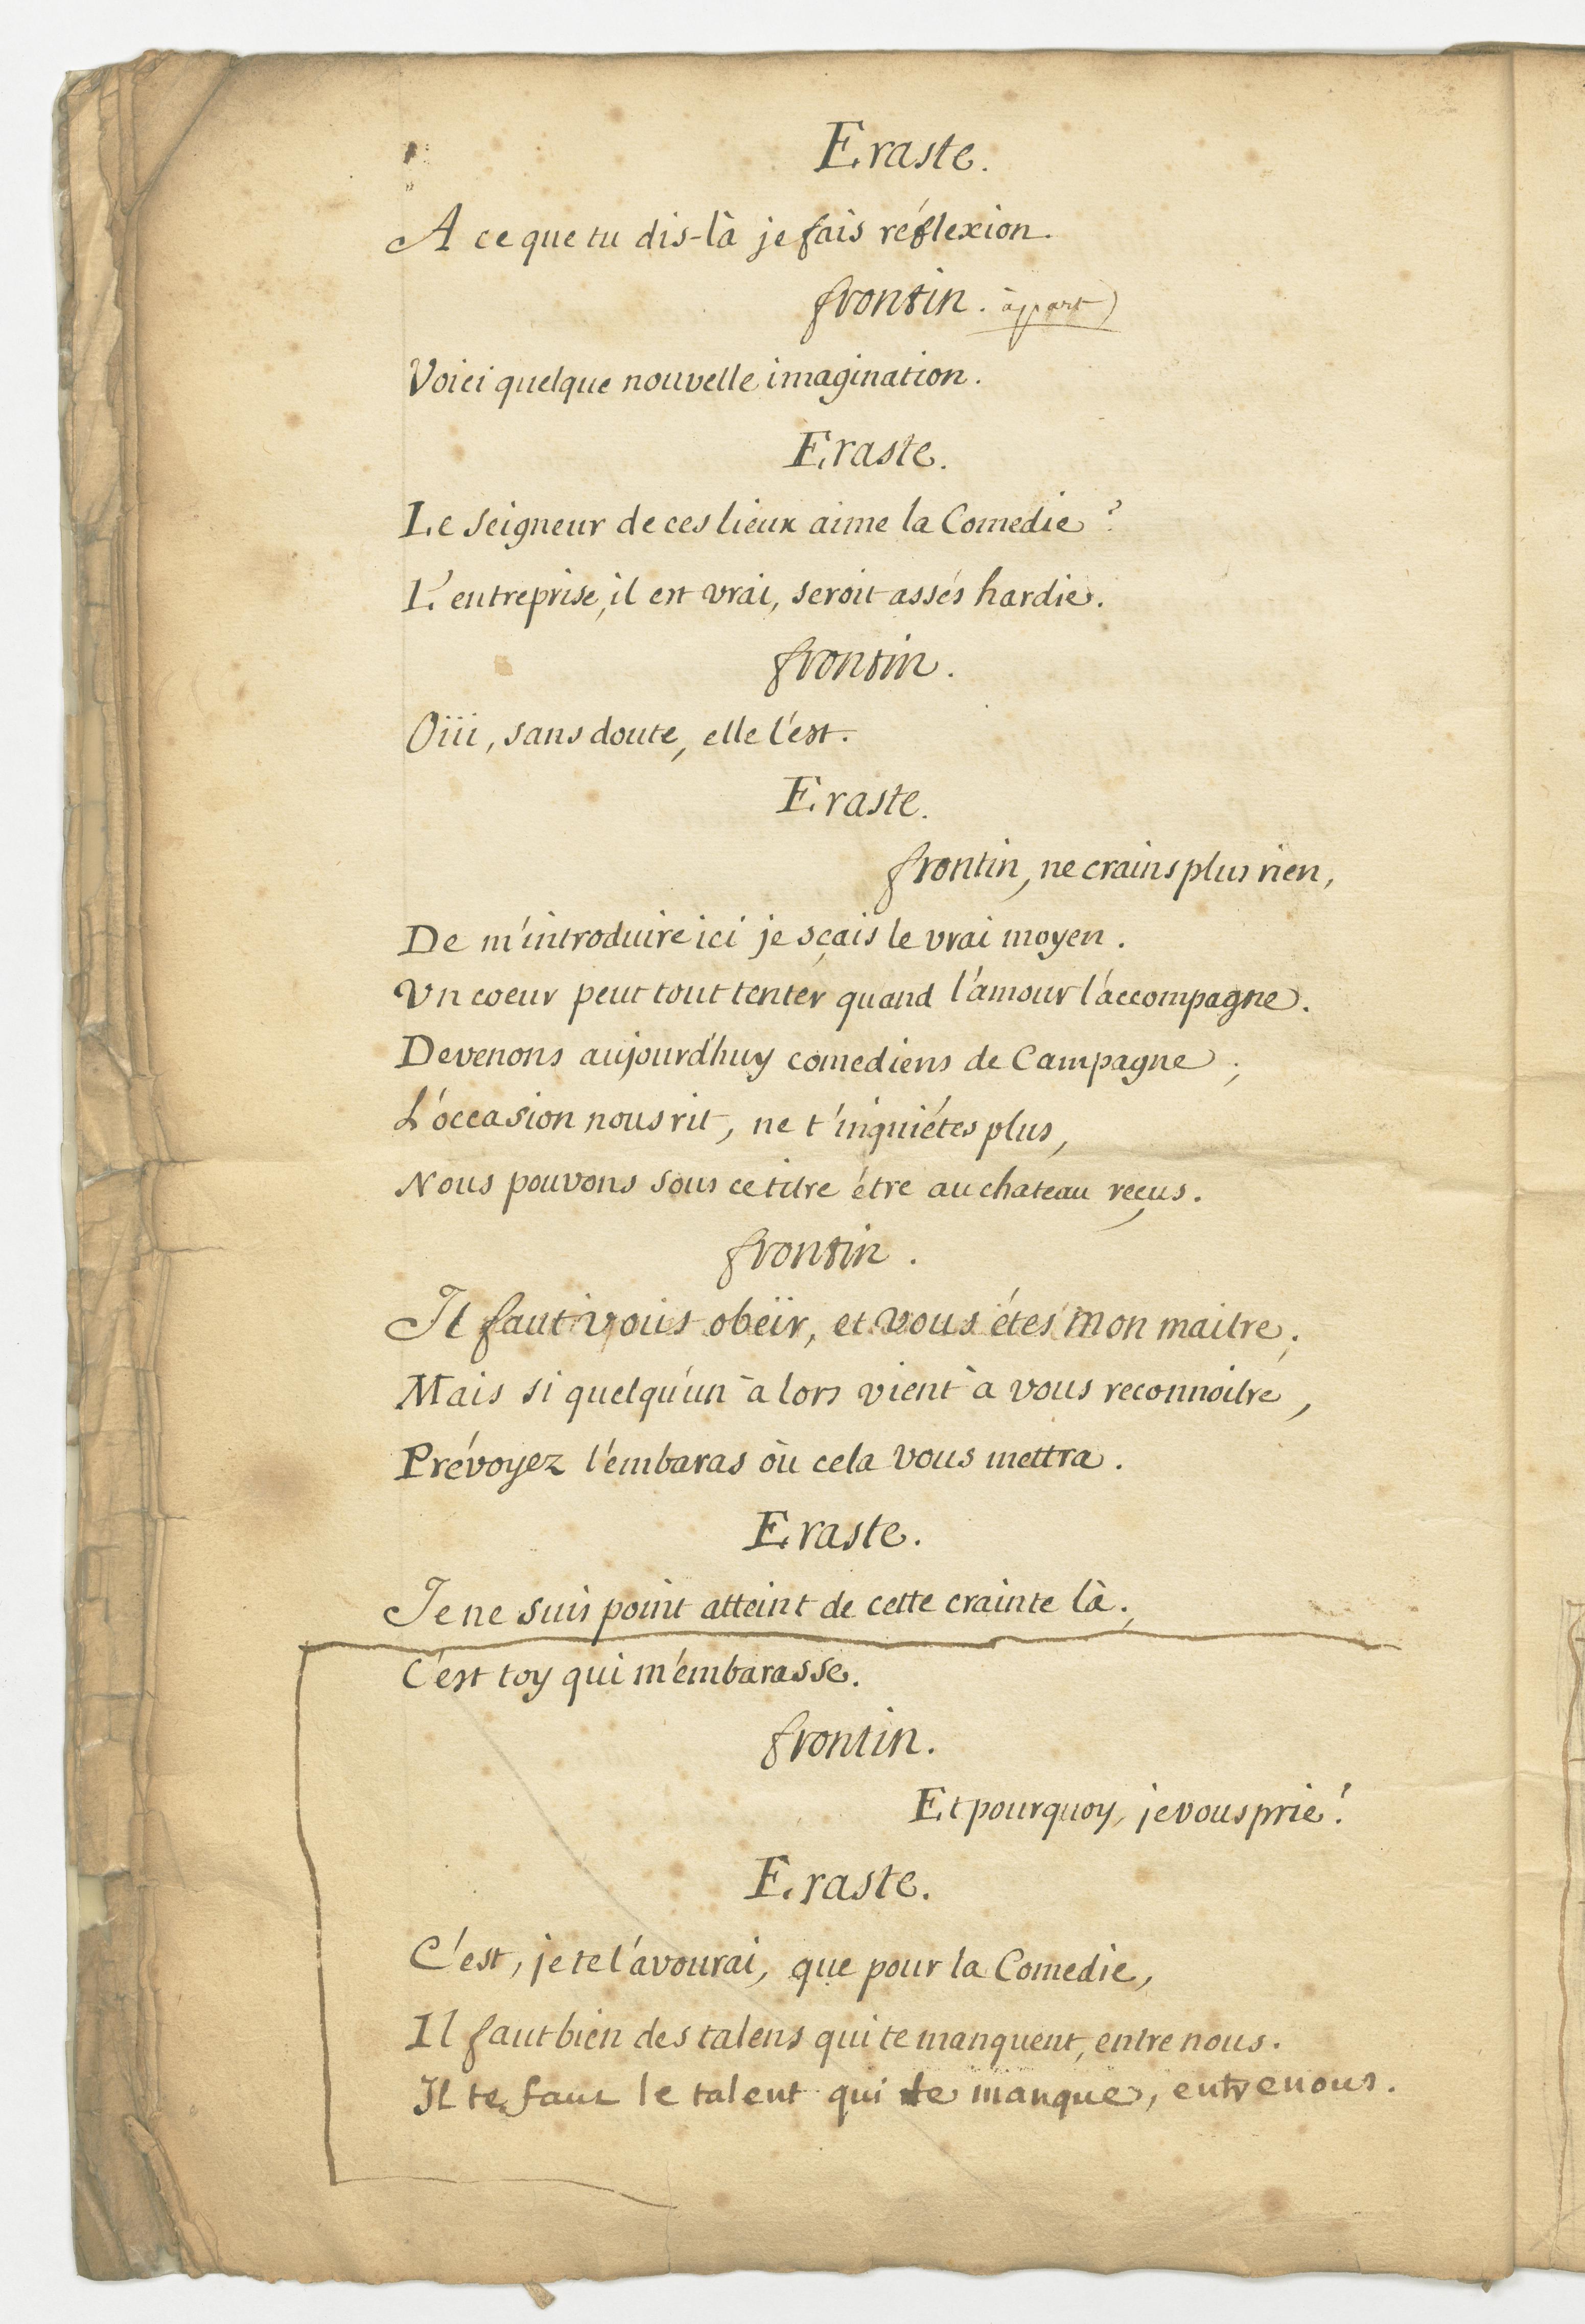 Eraste.
A ce que tu dis-là je fais réflexion.
frontin. à part)
Voici quelque nouvelle imagination.
Eraste.
Le Seigneur de ces lieux aime la Comedie?
L'entreprise, il est vrai, seroit assés hardie.
frontin.
Oüi, sans doute, elle l'est.
Eraste.
frontin, ne crains plus rien,
De m'introduire ici je sçais le vrai moyen.
Un coeur peut tout tenter quand l'amour l'accompagne.
Devenons aujourd'huy comediens de Campagne;
L'occasion nous rit, ne t'inquiétes plus,
Nous pouvons sous ce titre étre au chateau reçus.
frontin.
Il faut vous obeïr, et vous étes mon maitre;
Mais si quelqu'un àlors vient à vous reconnoitre,
Prévoyez l'embaras où cela vous mettra.
Eraste.
Je ne suis point atteint de cette crainte là;
C'est toy qui m'embarasse.
frontin.
Et pourquoy, je vous prie?
Eraste.
C'est, je te l'avourai, que pour la Comedie,
Il faut bien des talens qui te manquent, entre nous.
Il te faut le talent qui te manque, entre nous.